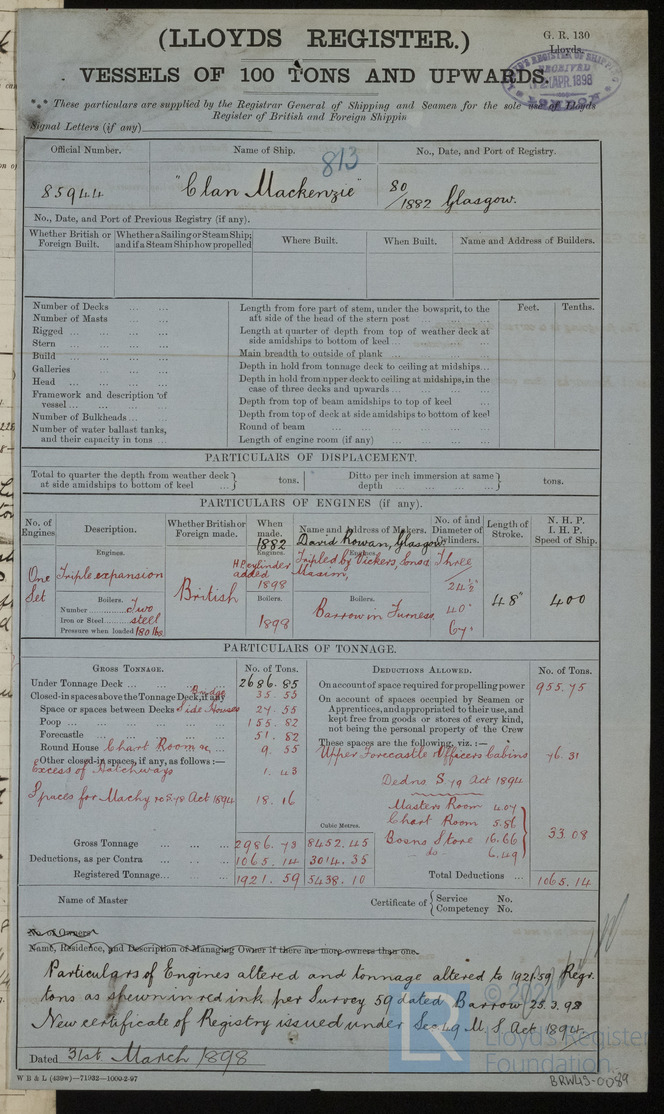 (LLOYDS REGISTER.)
G. R. 130
Lloyds.
VESSELS OF 100 TONS AND UPWARDS.
LLOYD'S REGISTER OF SHIPPING
RECEIVED
2 APR. 1898
LONDON
*** These particulars are supplied by the Registrar General of Shipping and Seamen for the sole use of Lloyds
Register of British and Foreign Shippin
Signal Letters (if any)
Official Number. Name of Ship. No., Date, and Port of Registry.
813
85944 "Clan Mackenzie" 80/1882 Glasgow.
No., Date, and Port of Previous Registry (if any).
Whether British or Foreign Built. Whether a Sailing or Steam Ship; and if a Steam Ship how propelled Where Built. When Built. Name and Address of Builders.
Number of Decks
Number of Masts
Rigged
Stern
Build
Galleries
Head
Framework and description of vessel
Number of Bulkheads
Number of water ballast tanks, and their capacity in tons
Feet. Tenths.
Length from fore part of stem, under the bowsprit, to the aft side of the head of the stern post
Length at quarter of depth from top of weather deck at side amidships to bottom of keel
Main breadth to outside of plank
Depth in hold from tonnage deck to ceiling at midships
Depth in hold from upper deck to ceiling at midships, in the case of three decks and upwards
Depth from top of beam amidships to top of keel
Depth from top of deck at side amidships to bottom of keel
Round of beam
Length of engine room (if any)
PARTICULARS OF DISPLACEMENT.
Total to quarter the depth from weather deck at side amidships to bottom of keel } tons. Ditto per inch immersion at same depth } tons.
PARTICULARS OF ENGINES (if any).
No. of Engines Description. Whether British or Foreign made. When made. Name and Address of Makers. No. of and Diameter of Cylinders. Length of Stroke. N. H. P. I. H. P. Speed of Ship.
1882 David Rowan, Glasgow
Engines. Engines. Engines.
One Set Triple expansion British H P cylinder added 1898 Tripled by Vickers, Sons & Maxim, Three 24½"
Boilers. Boilers. Boilers.
Number Two
Iron or Steel steel
Pressure when loaded 180 lbs
1898 Barrow in Furness 40" 67" 48" 400
PARTICULARS OF TONNAGE.
GROSS TONNAGE. No. of Tons. DEDUCTIONS ALLOWED. No. of Tons.
Under Tonnage Deck 2686.85
Closed-in spaces above the Tonnage Deck, if any Bridge 35.55
Space or spaces between Decks Side Houses 27.55
Poop 155.82
Forecastle 51.82
Round House Chart Room &c. 9.55
Other closed-in spaces, if any, as follows:—
Excess of Hatchways 1.43
Spaces for Machy Act 1894 18.16
Cubic Metres.
Gross Tonnage 2986.73 8452.45
Deductions, as per Contra 1065.14 3014.35
Registered Tonnage 1921.59 5438.10
On account of space required for propelling power 955.75
On account of spaces occupied by Seamen or Apprentices, and appropriated to their use, and kept free from goods or stores of every kind, not being the personal property of the Crew
These spaces are the following, viz.:—
Upper Forecastle Officers Cabins 76.31
Dedns. S. 79 Act 1894
Masters Room 4.07
Chart Room 5.86
Bosns Store 16.66
do 6.49
33.08
Total Deductions 1065.14
Name of Master Certificate of { Service No. Competency No.
No. of Owners
Name, Residence, and Description of Managing Owner if there are more owners than one.
Particulars of Engines altered and tonnage altered to 1921.59 Regr.
tons as shewn in red ink per Survey 59 dated Barrow 25.3.98
New certificate of Registry issued under Sec 49 M S Act 1894.
Dated 31st March 1898
W B & L (439w)—71932—1000-2-97
LR
© 2021
Lloyd's Register
Foundation.
BRW43-0089